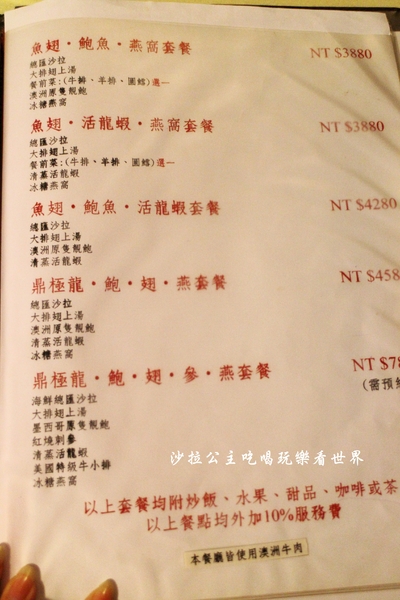 魚翅・鮑魚・燕窩套餐 NT $3880
總匯沙拉
大排翅上湯
餐前菜:(牛排、羊排、圓鱈)選一
澳洲原隻靚鮑
冰糖燕窩
魚翅・活龍蝦・燕窩套餐 NT $3880
總匯沙拉
大排翅上湯
餐前菜:(牛排、羊排、圓鱈)選一
清蒸活龍蝦
冰糖燕窩
魚翅・鮑魚・活龍蝦套餐 NT $4280
總匯沙拉
大排翅上湯
澳洲原隻靚鮑
清蒸活龍蝦
鼎極龍・鮑・翅・燕套餐 NT $458
總匯沙拉
大排翅上湯
澳洲原隻靚鮑
清蒸活龍蝦
冰糖燕窩
鼎極龍・鮑・翅・參・燕套餐 NT $78
(需預
海鮮總匯沙拉
大排翅上湯
墨西哥原隻靚鮑
紅燒刺參
清蒸活龍蝦
美國特級牛小排
冰糖燕窩
沙拉公主吃喝玩樂看世界
以上套餐均附炒飯、水果、甜品、咖啡或茶
以上餐點均外加10%服務費
本餐廳皆使用澳洲牛肉